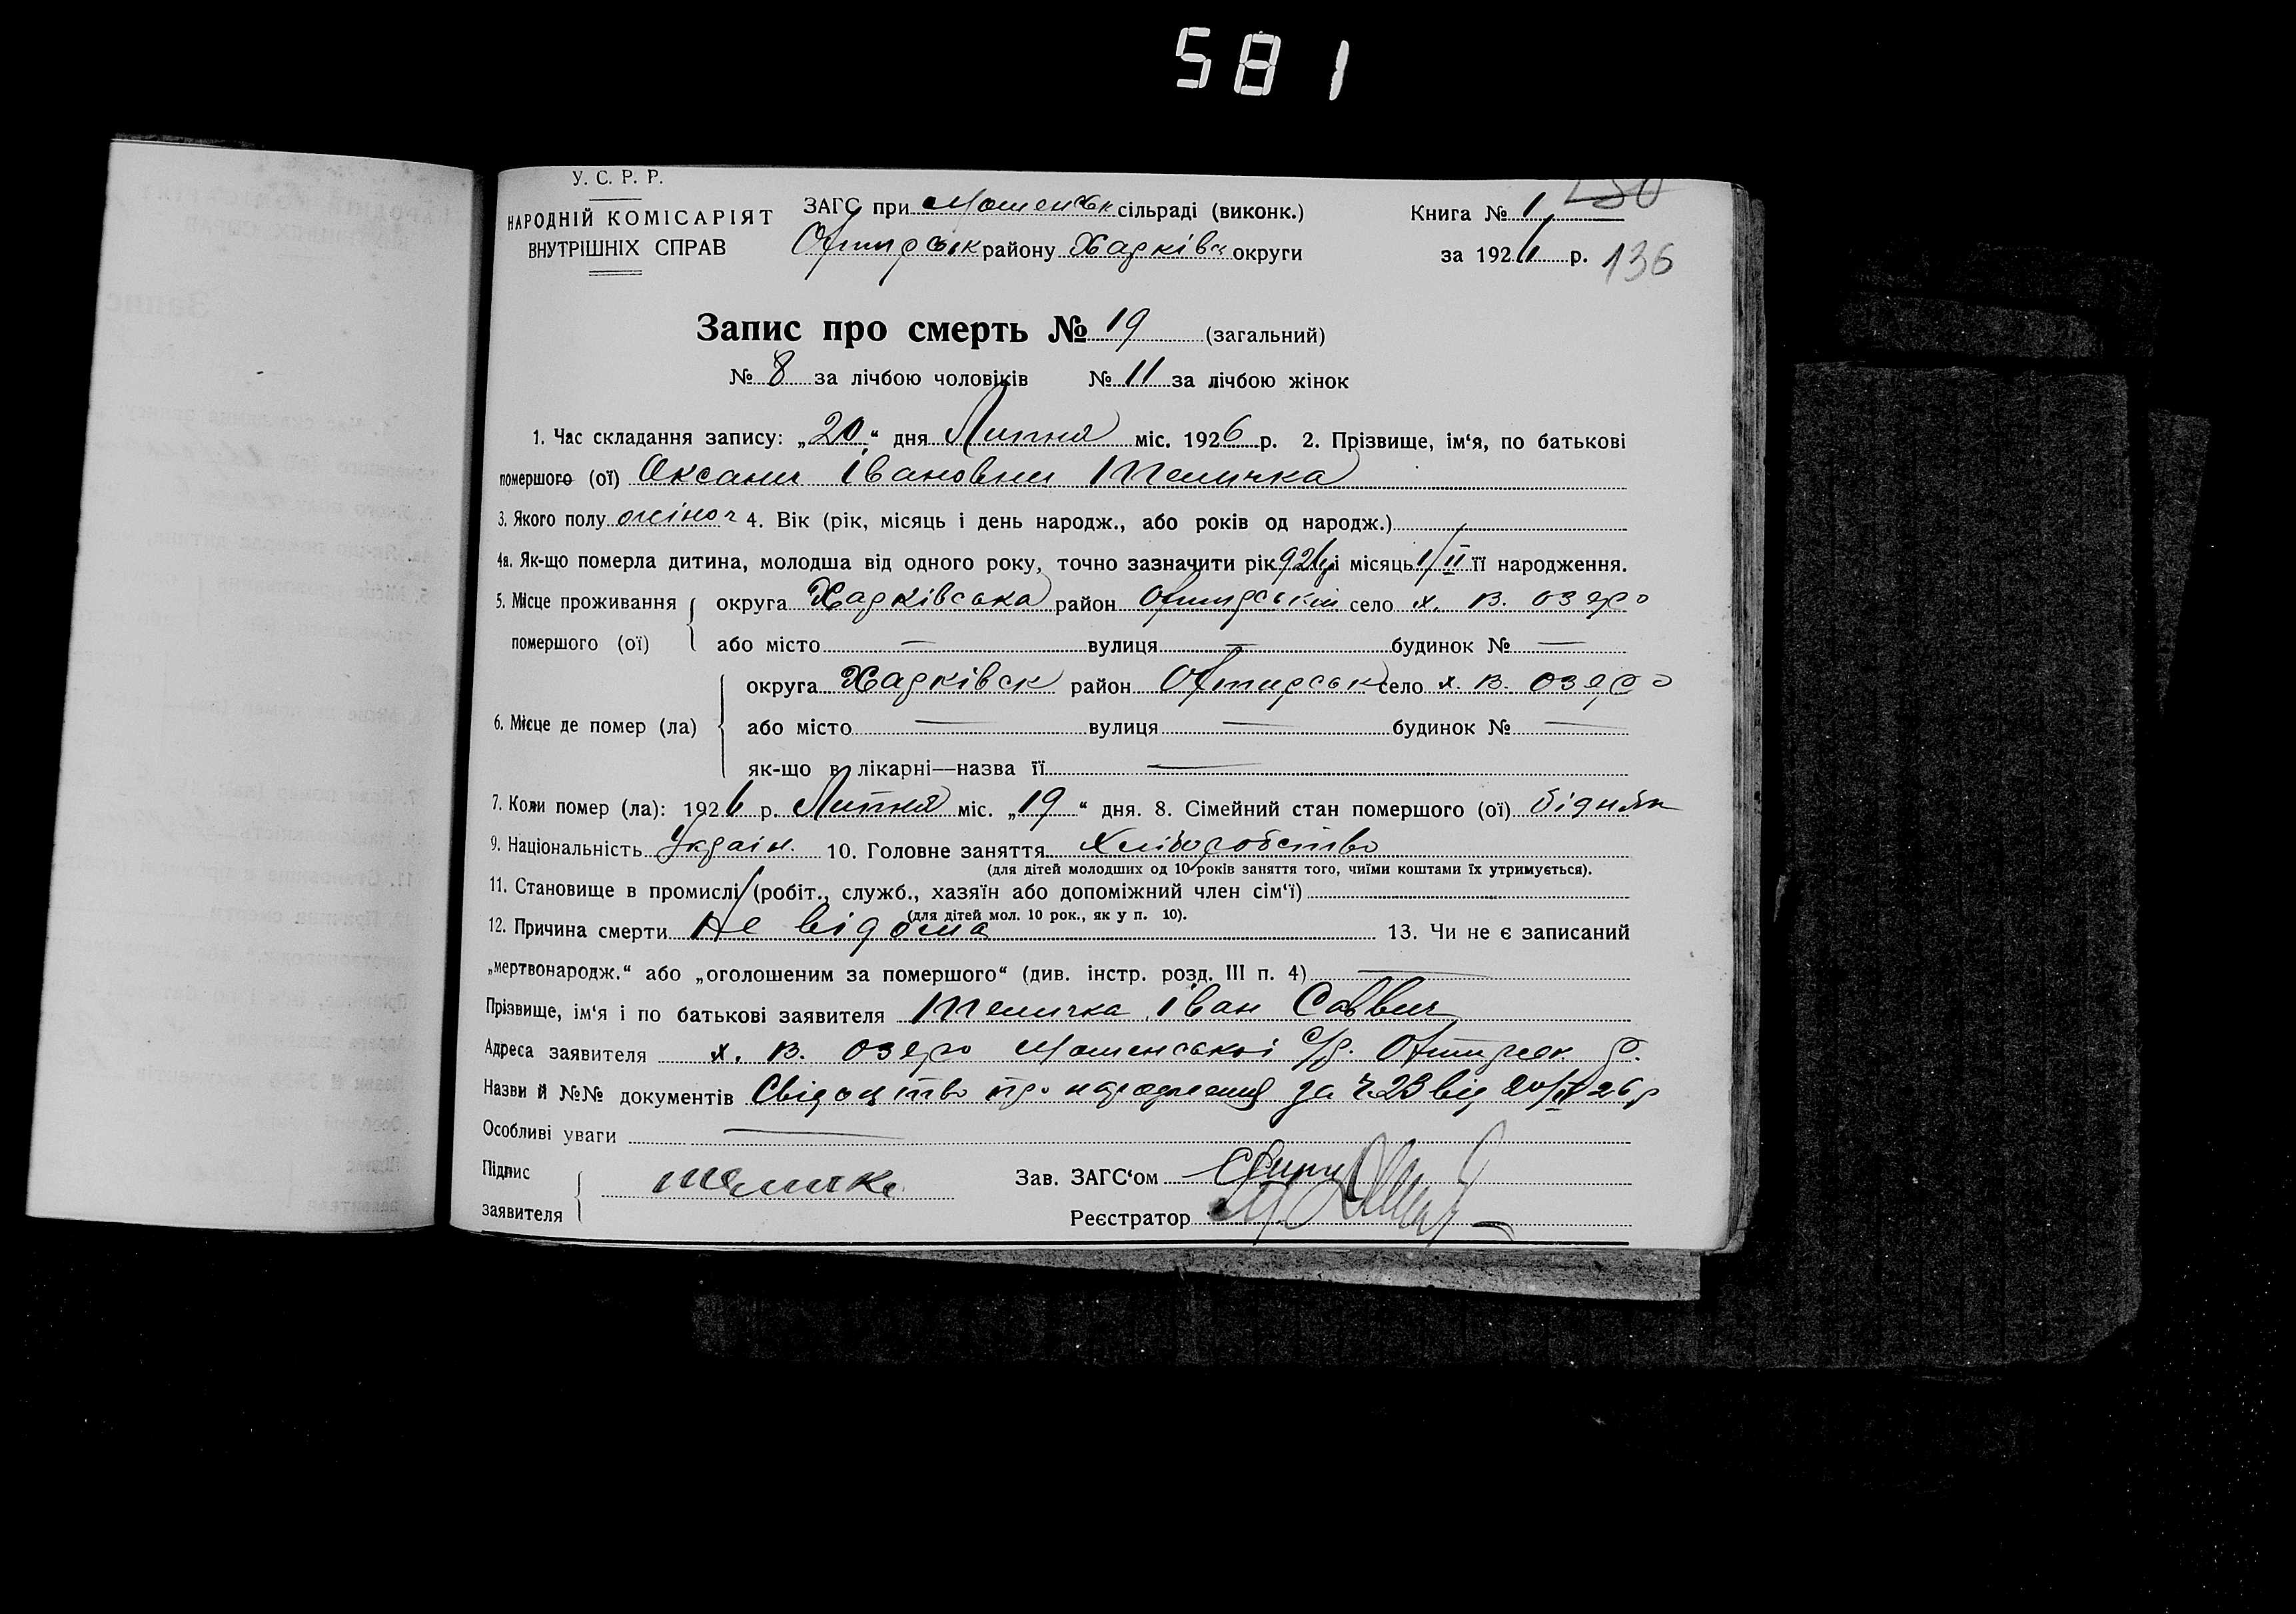 581
У. С. Р. Р.
НАРОДНІЙ КОМІСАРІЯТ
ВНУТРІШНІХ СПРАВ
ЗАГС при Мошенськ сільраді (виконк.)
Охтирськ району Харківс округи
Книга № 1
за 1926 р. 136
Запис про смерть № 19 (загальний)
№ 8 за лічбою чоловіків № 11 за лічбою жінок
1. Час складання запису: „20“ дня Липня міс. 1926 р. 2. Прізвище, ім‘я, по батькові
помершого (ої) Оксани Івановни Теличка
3. Якого полу жіноч 4. Вік (рік, місяць і день народж., або років од народж.)
4а. Як-що померла дитина, молодша від одного року, точно зазначити рік 926 і місяць 1/II її народження.
5. Місце проживання помершого (ої) { округа Харківська район Охтирський село х. В. озеро
або місто — вулиця — будинок № —
6. Місце де помер (ла) { округа Харківск район Охтирськ село х. В. озеро
або місто — вулиця — будинок № —
як-що в лікарні—назва її —
7. Коли помер (ла): 1926 р. Липня міс. „19“ дня. 8. Сімейний стан помершого (ої) бідняк
9. Національність Украін. 10. Головне заняття Хліборобство
(для дітей молодших од 10 років заняття того, чиїми коштами їх утримується).
11. Становище в промислі (робіт., служб., хазяїн або допоміжний член сім‘ї)
(для дітей мол. 10 рок., як у п. 10).
12. Причина смерти Не відома 13. Чи не є записаний
„мертвонародж.“ або „оголошеним за помершого“ (див. інстр. розд. III п. 4) —
Прізвище, ім‘я і по батькові заявителя Теличка Іван Саввич
Адреса заявителя х. В. озеро Мошенської с/р. Охтирск. р.
Назви й №№ документів Свідоцтво про народження за ч 23 від 26 р
Особливі уваги —
Підпис заявителя { теличка
Зав. ЗАГС‘ом
Реєстратор